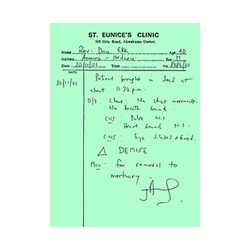 ST. EUNICE'S CLINIC
Name Rev. Dan Eke Age AD
Address Sex M
Date 30/11/01 No.
DATE
30/11/01 Patient brought in dead at
about 11.30 pm.
O/E: Chest No chest movements.
No breath sounds.
CVS: Pulse Nil
Heart Sound Nil
CNS: Eyes dilated & fixed.
Δ DEMISE
for removal to
mortuary.